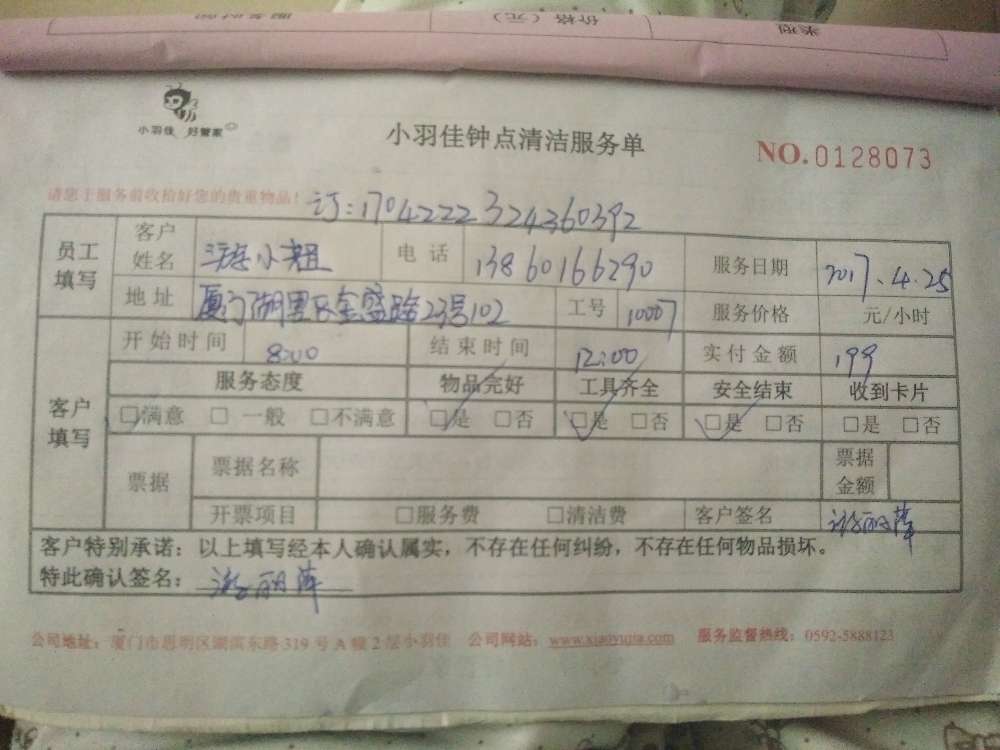 服务时间 价格（元） 类型
小羽佳 好管家
小羽佳钟点清洁服务单
NO.0128073
请您于服务前收拾好您的贵重物品！
订：1704222324360392
员工填写 客户姓名 小姐 电话 13860166290 服务日期 2017.4.25
地址 厦门湖里区金盛路23号102 工号 10007 服务价格 元/小时
客户填写 开始时间 8:00 结束时间 12:00 实付金额 199
服务态度 物品完好 工具齐全 安全结束 收到卡片
□满意 □一般 □不满意 □是 □否 □是 □否 □是 □否 □是 □否
票据 票据名称 票据金额
开票项目 □服务费 □清洁费 客户签名 游丽萍
客户特别承诺：以上填写经本人确认属实，不存在任何纠纷，不存在任何物品损坏。
特此确认签名：游丽萍
公司地址：厦门市思明区湖滨东路319号A幢2层小羽佳 公司网站：www.xiaoyujia.com 服务监督热线：0592-5888123